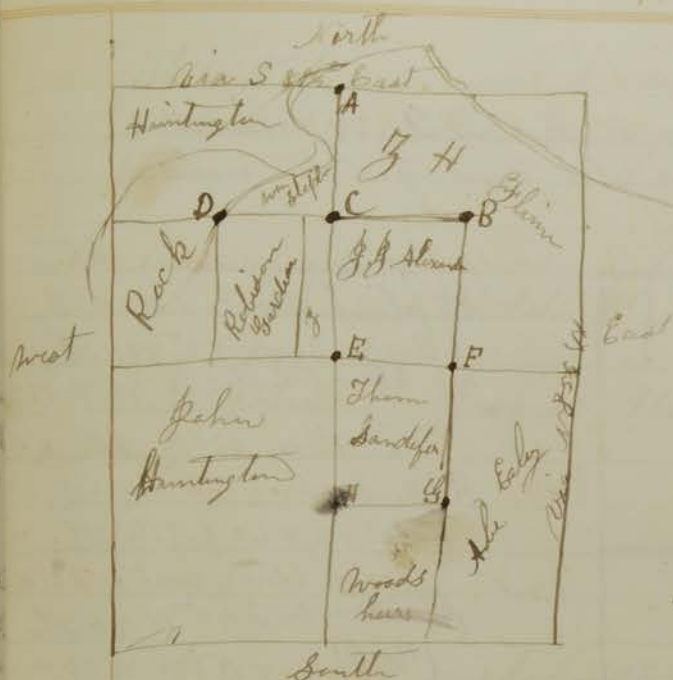 North
Via S East
Huntington
A
Z H
Wm Steph
D
C
B
Flinn
Rock
Robison
Gordon
J
J J Alexander
West
East
E
F
John
Huntington
Thom
Sandifer
H
G
Abe Ealey
Woods
heirs
South